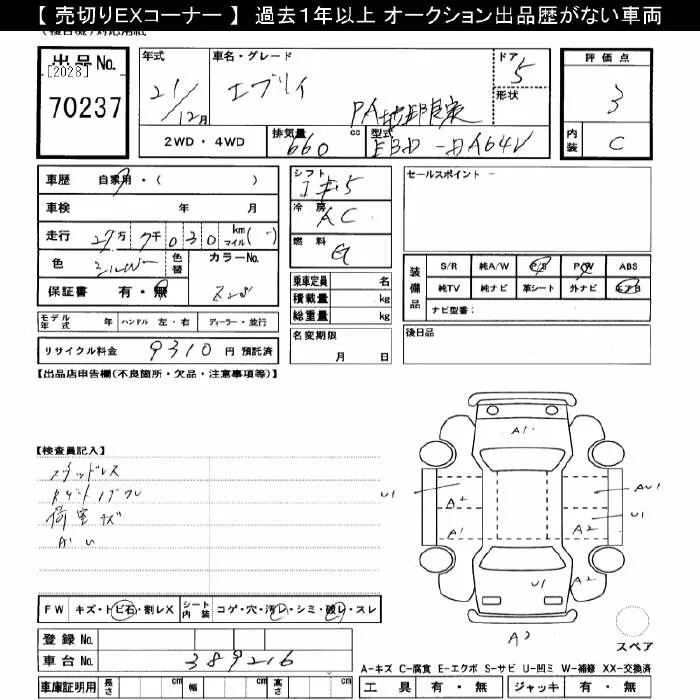 【 売切りEXコーナー 】 過去1年以上 オークション出品歴がない車両
出品No.
[2028]
70237
年式
21/12月
車名・グレード
エブリイ
PA
ドア
5
形状
2WD・4WD
排気量
660
cc
型式
EBD-DA64V
評価点
3
内装
C
車歴 自家用・( )
車検 年 月
走行 27万 7千 030 km マイル( - )
色 シルバー 色替 カラーNo.
保証書 有・無
Z2S
モデル年式 年 ハンドル 左・右 ディーラー・並行
リサイクル料金 9310 円 預託済
シフト
5
冷房
AC
燃料
G
乗車定員 名
積載量 kg
総重量 kg
名変期限
月 日
セールスポイント
装備品
S/R 純A/W P/S P/W ABS
純TV 純ナビ 革シート 外ナビ エアB
ナビ型番:
後日品
【出品店申告欄(不良箇所・欠品・注意事項等)】
【検査員記入】
スタッドレス
荷室キズ
FW キズ・トビ石・割レX シート内装 コゲ・穴・汚レ・シミ・破レ・スレ
登録 No.
車台 No. 389216
車庫証明用 長さ cm 幅 cm 高さ cm
A1
U1
A2
A1
AU1
U1
A2
U1
A2
A2
スペア
A-キズ C-腐食 E-エクボ S-サビ U-凹ミ W-補修 XX-交換済
工具 有・無 ジャッキ 有・無